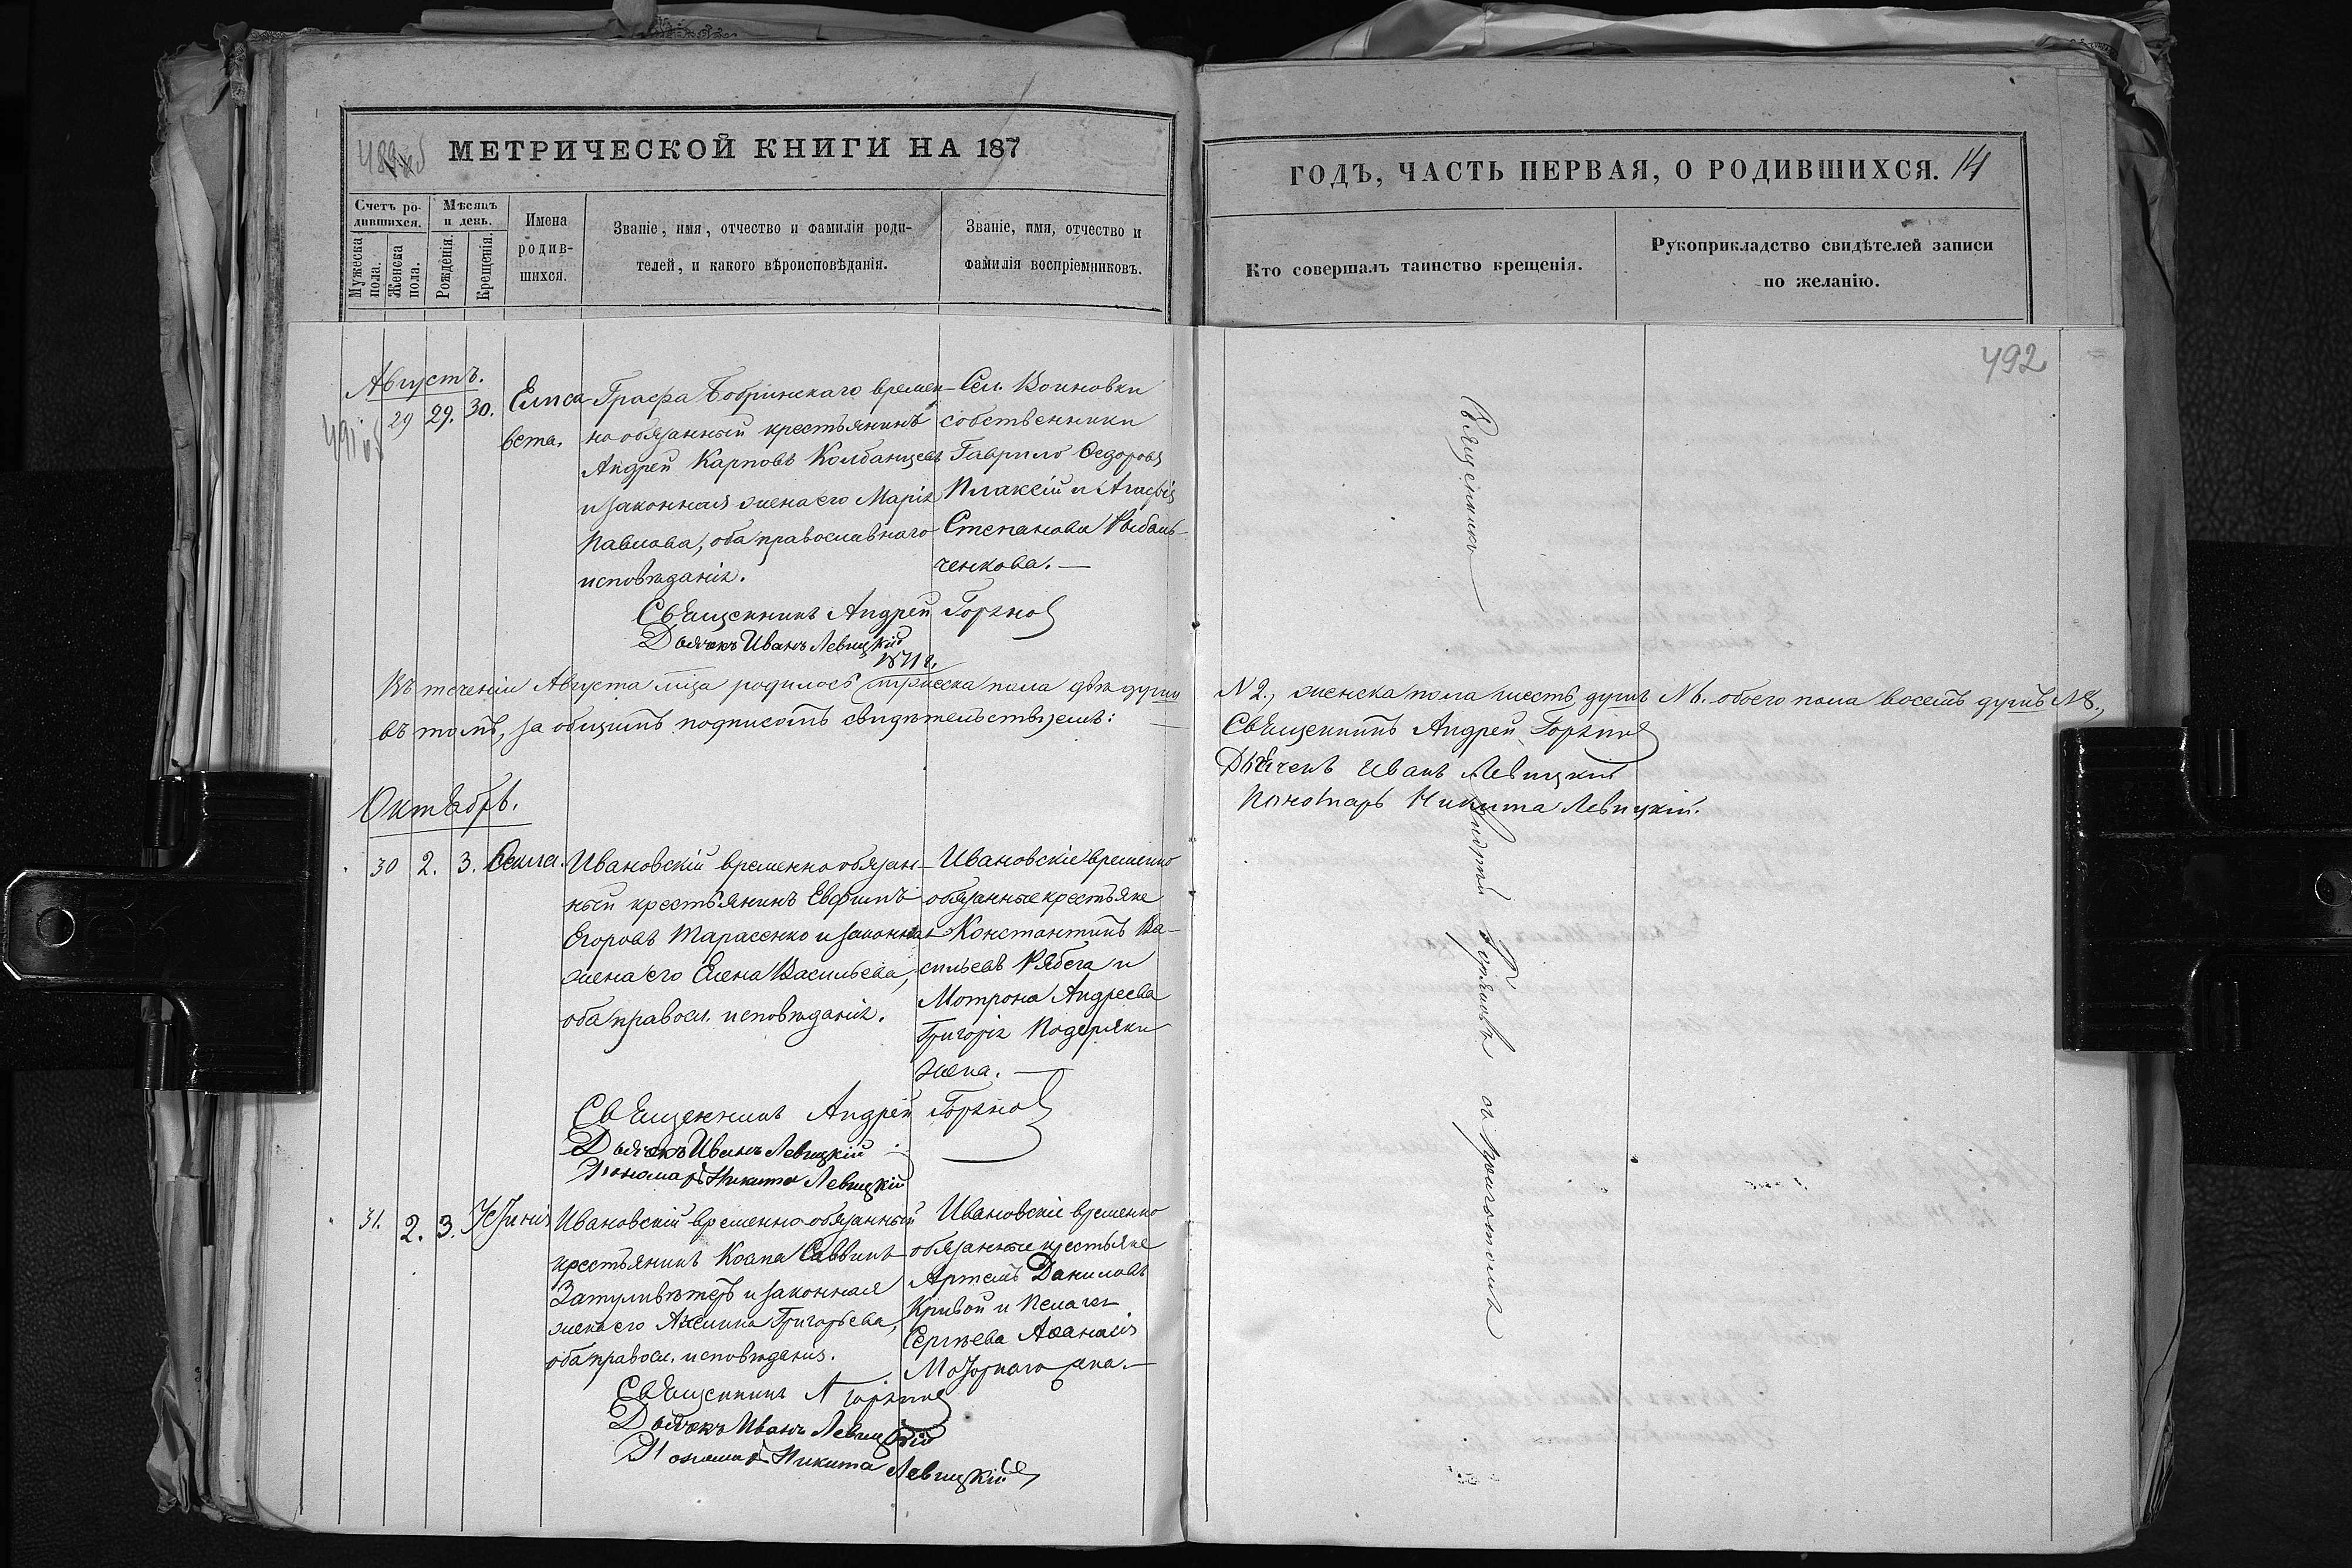 МЕТРИЧЕСКОЙ КНИГИ НА 187
Счетъ ро-
дившихся.
Мѣсяцъ
и день.
Мужеска
пола.
Женска
пола.
Рожденія.
Крещенія.
Имена
родив-
шихся.
Званіе, имя, отчество и фамилія роди-
телей, и какого вѣроисповѣданія.
Званіе, имя, отчество и
фамилія воспріемниковъ.
Августъ.
29 29. 30.
Елиса
вета.
Графа Бобринскаго времен-
но обязанный крестьянинъ
Андрей Карповъ Колбанцевъ
и законная жена его Марія
Павлова, оба православнаго
исповѣданія.
Сел. Воиновки
собственники
Гаврило Ѳедоровъ
Плаксій и Агафія
Степанова Рыбаль-
ченкова.
Священникъ Андрей Горяновъ
Дьячокъ Иванъ Левицкій
1871 г.
Въ теченіи Августа мца родилось мужеска пола двѣ души
въ томъ, за общимъ подписомъ свидѣтельствуемъ:
Октябрь.
30 2. 3.
Ивановскій временно обязан-
ный крестьянинъ Евфимъ
Егоровъ Тарасенко и законная
жена его Елена Васильева,
оба правосл. исповѣданія.
Ивановскіе временно
обязанные крестьяне
Константинъ Ва-
сильевъ Рябега и
Мотрона Андреева
Григорія Подеряки
жена.
Священникъ Андрей Горяновъ
Дьячокъ Иванъ Левицкій
Пономарь Никита Левицкій
31. 2. 3.
Устинія
Ивановскій временно обязанный
крестьянинъ Козма Саввинъ
Затуливѣтеръ и законная
жена его Акилина Григорьева,
оба правосл. исповѣданія.
Ивановскіе временно
обязанные крестьяне
Артемъ Даниловъ
Кривой и Пелагея
Сергѣева Аѳанасія
жена.
Священникъ А Горяновъ
Дьячокъ Иванъ Левицкій
Пономарь Никита Левицкій
ГОДЪ, ЧАСТЬ ПЕРВАЯ, О РОДИВШИХСЯ. 14
Кто совершалъ таинство крещенія.
Рукоприкладство свидѣтелей записи
по желанію.
492
N 2., женска пола шесть душъ N 6. обоего пола восемь душъ N 8.,
Священникъ Андрей Горяновъ
Дьячекъ Иванъ Левицкій
Пономарь Никита Левицкій.
Священникъ Андрей Горяновъ съ причтомъ